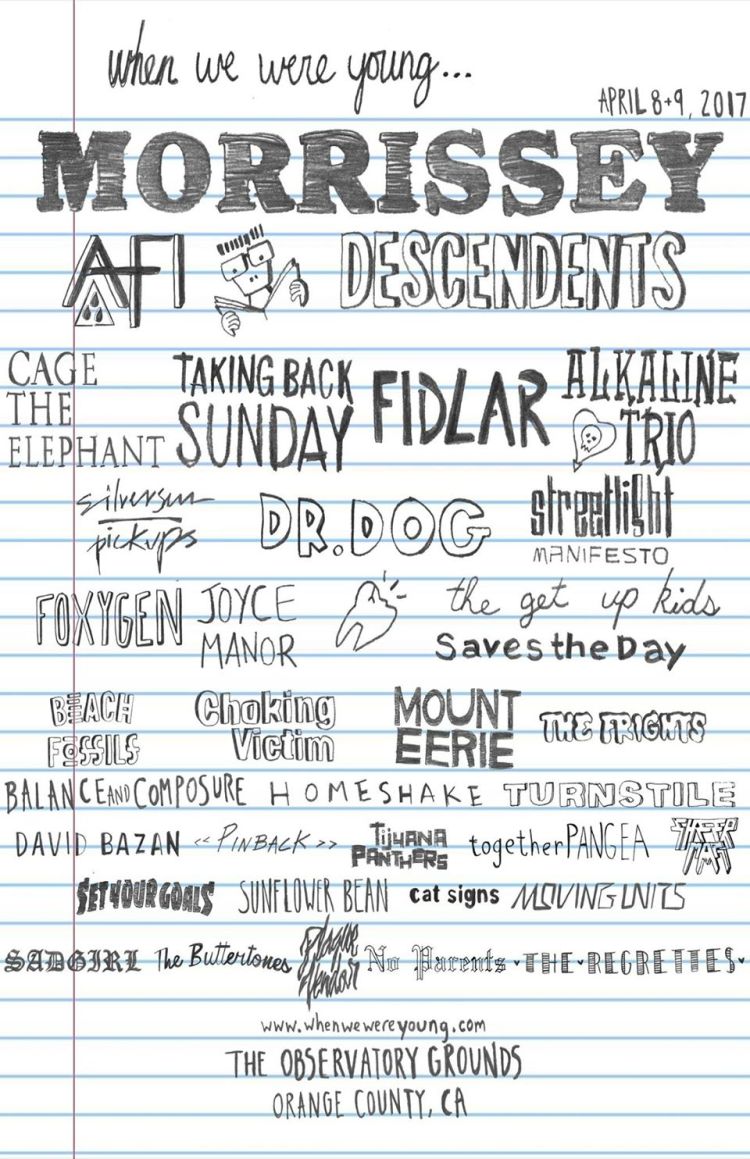 when we were young...
APRIL 8+9, 2017
MORRISSEY
AFI DESCENDENTS
CAGE THE ELEPHANT
TAKING BACK SUNDAY
FIDLAR
ALKALINE TRIO
silversun pickups
DR. DOG
streetlight MANIFESTO
FOXYGEN
JOYCE MANOR
the get up kids
Saves the Day
BEACH FOSSILS
Choking Victim
MOUNT EERIE
THE FRIGHTS
BALANCE AND COMPOSURE HOMESHAKE TURNSTILE
DAVID BAZAN <<PINBACK>> TIJUANA PANTHERS together PANGEA SHEER MAG
SET YOUR GOALS SUNFLOWER BEAN cat signs MOVING UNITS
SADGIRL The Buttertones Plague Vendor No Parents THE REGRETTES
www.whenwewereyoung.com
THE OBSERVATORY GROUNDS
ORANGE COUNTY, CA